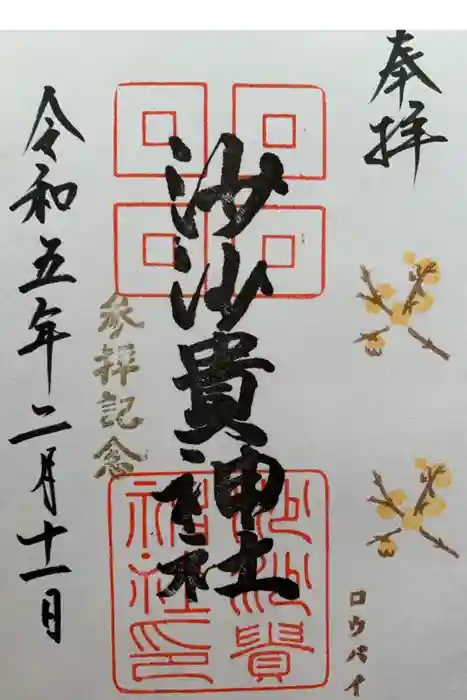 奉拝
ロウバイ
沙沙貴神社
沙沙貴
神社印
参拝記念
令和五年二月十一日